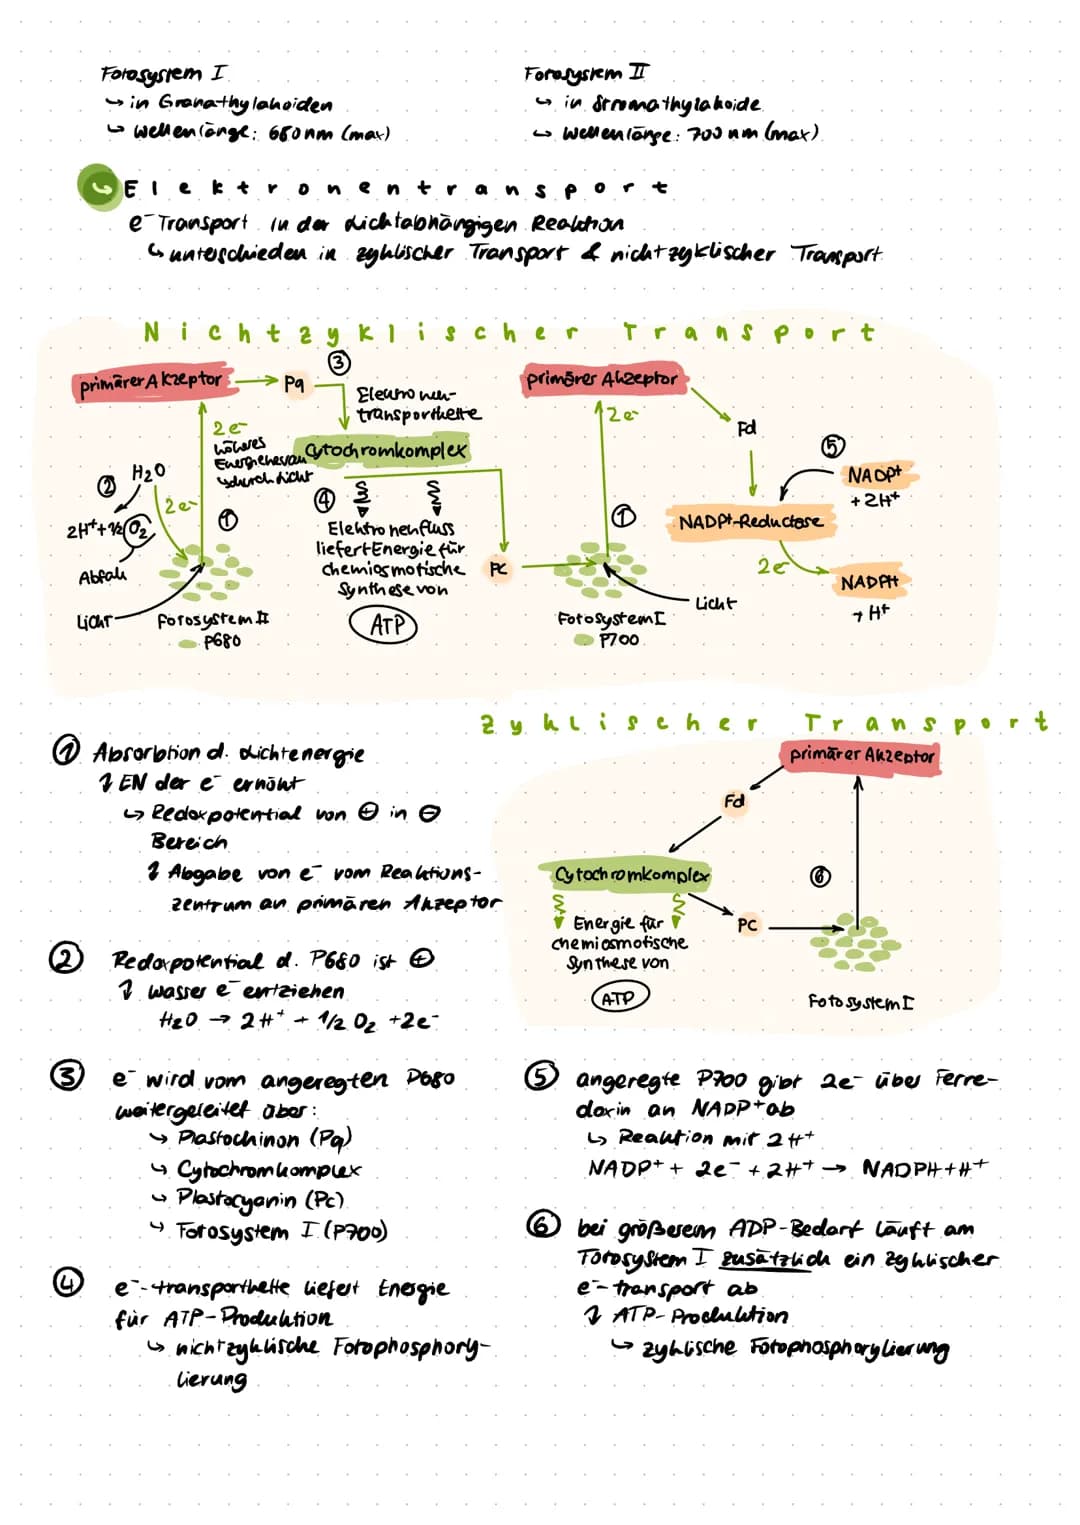 Fotosystem I
↪ in Granathylakoiden
↪ Wellenlänge: 680nm (max)
Fotosystem II
↪ in Stromathylakoide
↪ Wellenlänge: 700 nm (max)
↪ Elektronentransport
e⁻ Transport in der Lichtabhängigen Reaktion
↪ unterschieden in zyklischer Transport & nichtzyklischer Transport
Nichtzyklischer Transport
primärer Akzeptor
Pq
③
Elektronen-
transportkette
2e⁻
höheres
Energieniveau
↪durch Licht
Cytochromkomplex
② H₂O
2e⁻
2H⁺+½O₂
Abfall
①
④
Elektronenfluss
liefert Energie für
chemiosmotische
Synthese von
ATP
PC
Licht
Fotosystem II
P680
primärer Akzeptor
2e⁻
Fd
⑤
NADP⁺
+2H⁺
①
NADP⁺-Reductase
2e⁻
NADPH
+ H⁺
Licht
Fotosystem I
P700
Zyklischer Transport
primärer Akzeptor
Fd
Cytochromkomplex
⑥
Energie für
chemiosmotische
Synthese von
ATP
PC
Fotosystem I
① Absorbtion d. Lichtenergie
↯ EN der e⁻ erhöht
↪ Redoxpotential von ⊕ in ⊖
Bereich
↯ Abgabe von e⁻ vom Reaktions-
zentrum an primären Akzeptor
② Redoxpotential d. P680 ist ⊕
↯ wasser e⁻ entziehen
H₂O → 2H⁺ + 1/2 O₂ +2e⁻
③ e⁻ wird vom angeregten P680
weitergeleitet über:
↪ Plastochinon (Pq)
↪ Cytochromkomplex
↪ Plastocyanin (Pc)
↪ Fotosystem I (P700)
④ e⁻-transportkette liefert Energie
für ATP-Produktion
↪ nichtzyklische Fotophosphory-
lierung
⑤ angeregte P700 gibt 2e⁻ über Ferre-
doxin an NADP⁺ ab
↪ Reaktion mit 2H⁺
NADP⁺ + 2e⁻ + 2H⁺ → NADPH+H⁺
⑥ bei größerem ADP-Bedarf läuft am
Fotosystem I zusätzlich ein zyklischer
e⁻-transport ab
↯ ATP-Produktion
↪ zyklische Fotophosphorylierung